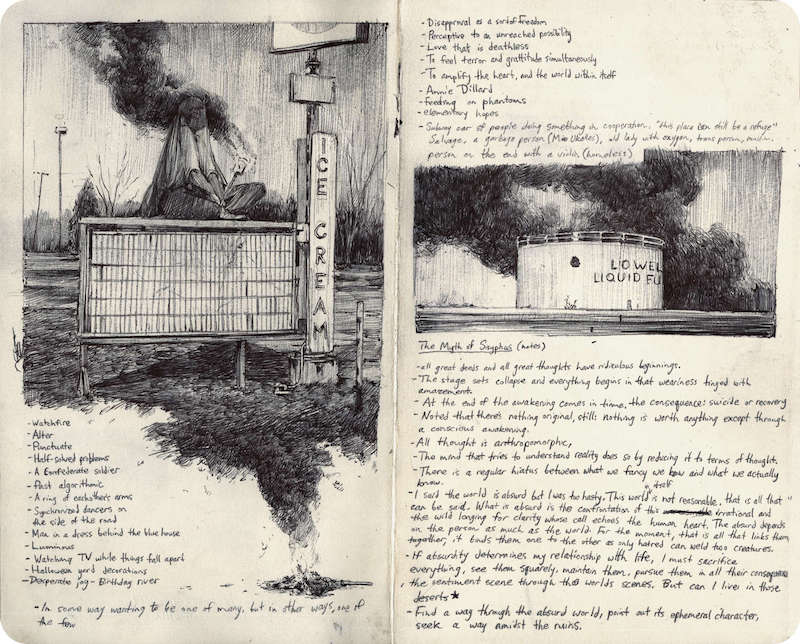 ICE CREAM
- Watchfire
- Alter
- Punctuate
- Half-solved problems
- A Confederate soldier
- Past algorithmic
- A ring of eachother's arms
- Synchronized dancers on
the side of the road
- Man in a dress behind the blue house
- Luminous
- Watching TV while things fall apart
- Halloween yard decorations
- Desperate joy - Birthday river
- In some way wanting to be one of many, but in other ways, one of
the few
- Disapproval as a sort of freedom
- Perceptive to an unreached possibility
- Love that is deathless
- To feel terror and grattitude simultaneously
- To amplify the heart, and the world within itself
- Annie Dillard
- feeding on phantoms
- elementary hopes
- Subway car of people doing something in cooperation. "this place can still be a refuge"
Salvage, a garbage person (Mia Ukeles), old lady with oxygen, trans person, muslim
person on the end with a violin (homeless)
LIOWEL
LIQUID FU
The Myth of Sisyphus (notes)
- all great deeds and all great thoughts have ridiculous beginnings.
- The stage sets collapse and everything begins in that weariness tinged with
amazement.
- At the end of the awakening comes in time, the consequence: suicide or recovery
- Noted that there's nothing original, still: nothing is worth anything except through
a conscious awakening.
- All thought is arthropomorphic,
- The mind that tries to understand reality does so by reducing it to terms of thought.
- There is a regular hiatus between what we fancy we know and what we actually
know.
- I said the world is absurd but I was to hasty. This world itself is not reasonable, that is all that
can be said. What is absurd is the confrontation of this irrational and
the wild longing for clarity whose call echoes the human heart. The absurd depends
on the person as much as the world. For the moment, that is all that links them
together, it binds them one to the other as only hatred can weld two creatures.
- If absurdity determines my relationship with life, I must sacrifice
everything, see them squarely, maintain them, pursue them in all their
the sentiment scene through the worlds scenes. But can I live in those
deserts★
- Find a way through the absurd world, point out its ephemeral character,
seek a way amidst the ruins.